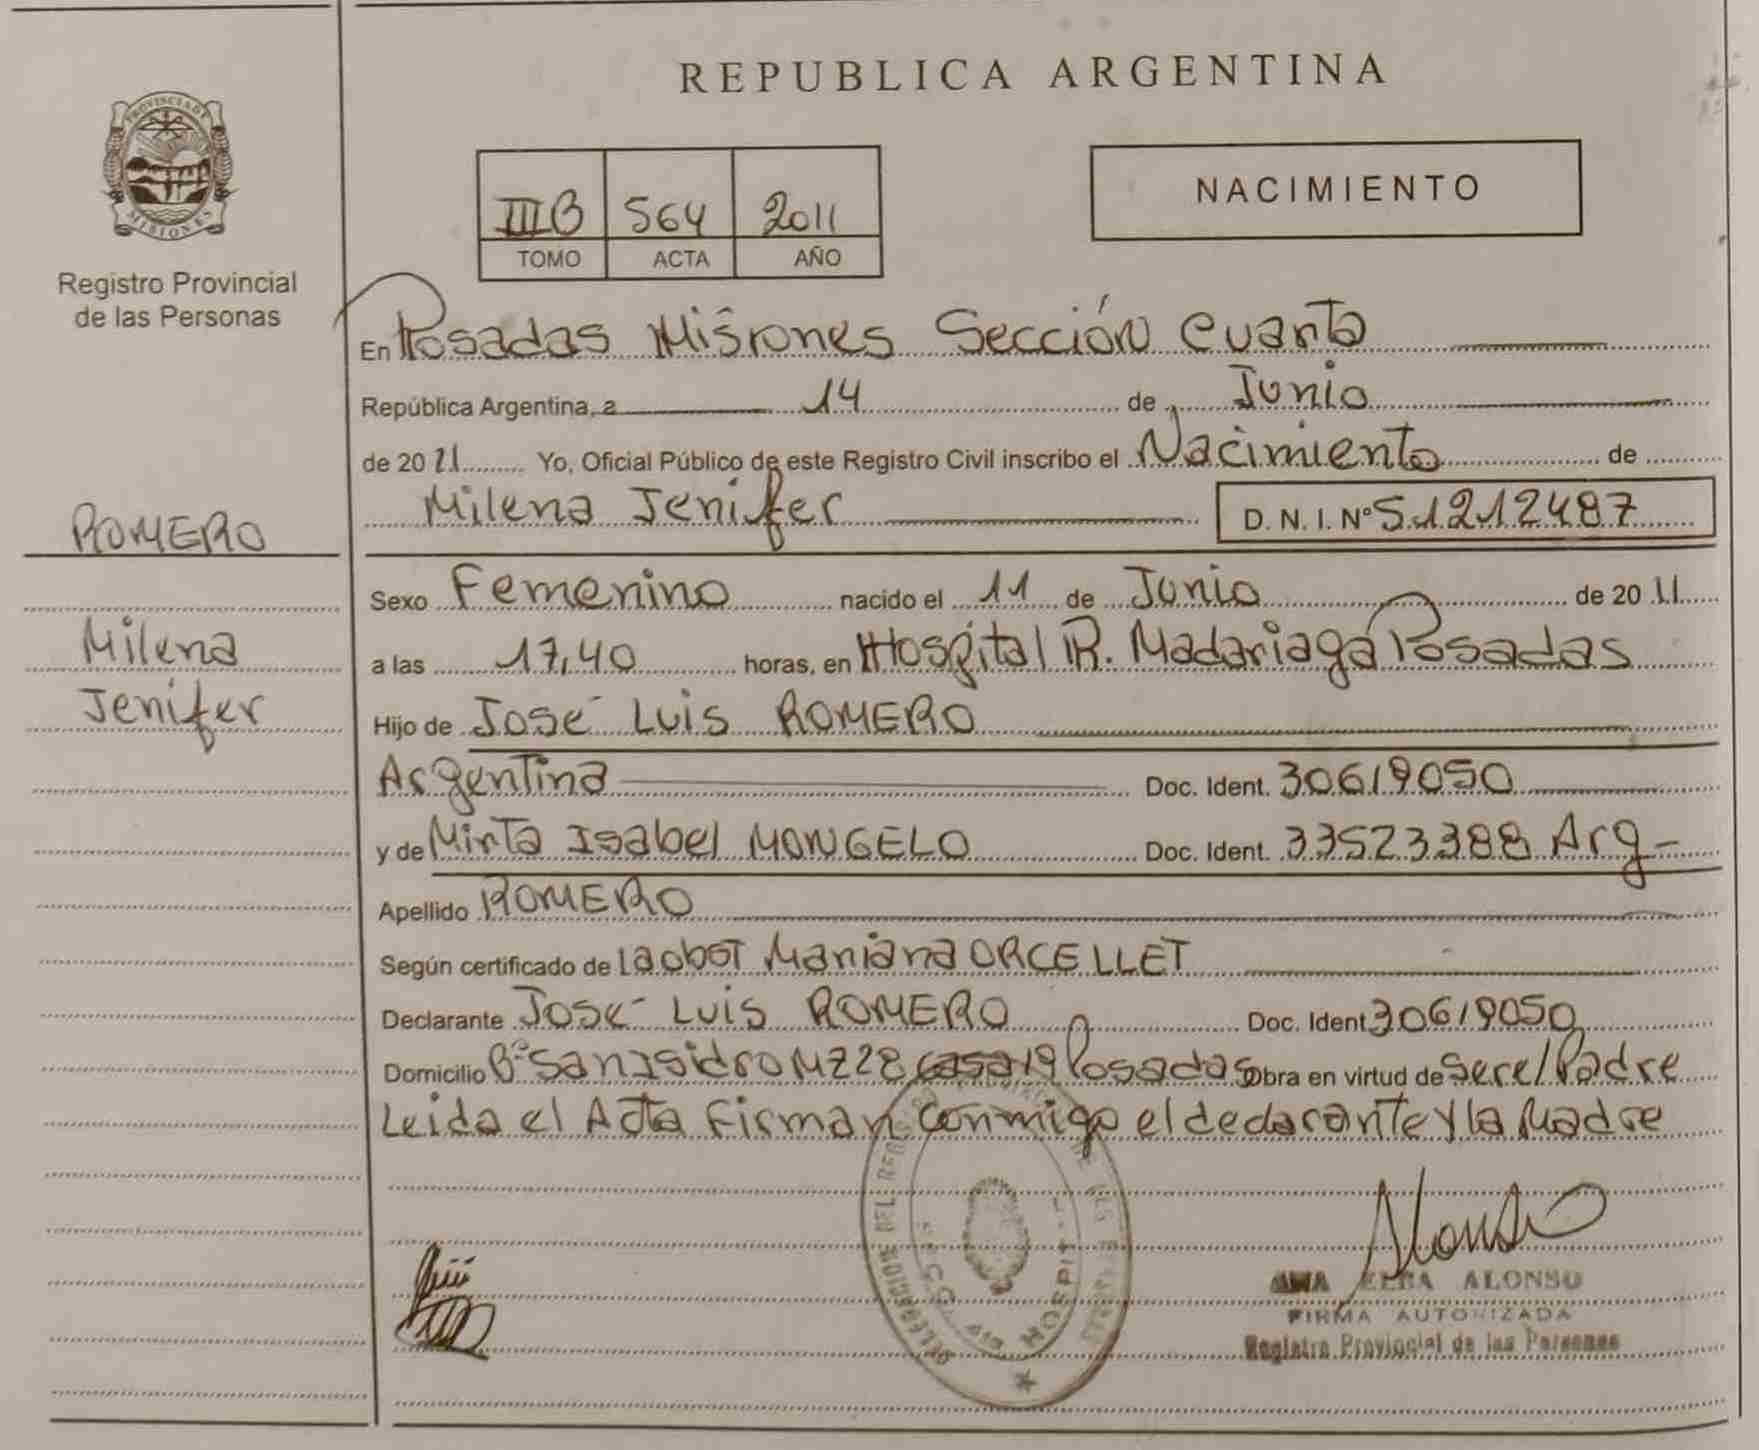 REPUBLICA ARGENTINA
PROVINCIA DE MISIONES
Registro Provincial
de las Personas
NACIMIENTO
III B 564 2011
TOMO ACTA AÑO
En Posadas Misiones Sección Cuarta
República Argentina, a 14 de Junio
de 2011 Yo, Oficial Público de este Registro Civil inscribo el Nacimiento de
Milena Jenifer D. N. I. Nº 51212487
ROMERO
Milena
Jenifer
Sexo Femenino nacido el 11 de Junio de 2011
a las 17,40 horas, en Hospital R. Madariaga Posadas
Hijo de José Luis ROMERO
Argentina Doc. Ident. 30619050
y de Mirta Isabel MONGELO Doc. Ident. 33523388 Arg-
Apellido ROMERO
Según certificado de la obst Mariana ORCELLET
Declarante José Luis ROMERO Doc. Ident 30619050
Domicilio Bº San Isidro MZ 228 casa 19 Posadas Obra en virtud de ser el Padre
Leida el Acta Firman conmigo el declarante y la Madre
DELEGACION DEL REGISTRO DE LAS
HOSPITAL
Alonso
ANA ELBA ALONSO
FIRMA AUTORIZADA
Registro Provincial de las Personas